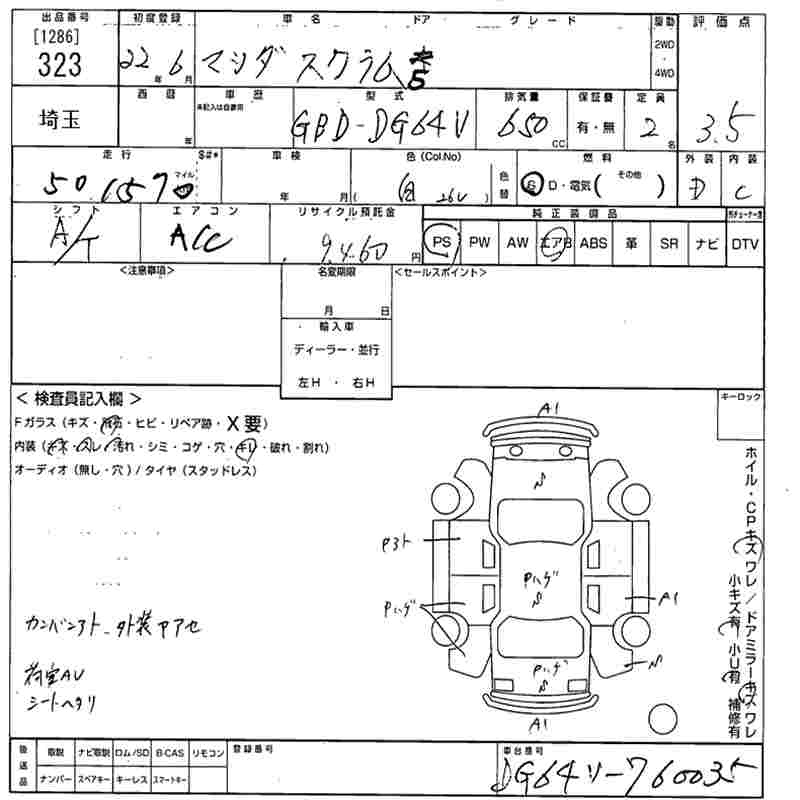 出品番号 初度登録 車名 ドア グレード 駆動 評価点
[1286]
323 22年 6月 マツダ スクラム 5 2WD・4WD 3.5
西暦 車歴 型式 排気量 保証書 定員
未記入は自家用
埼玉 年 GBD-DG64V 650 CC 有・無 2名
走行 S#* 車検 色(Col.No) 燃料 外装 内装
50,157 マイル 年 月 ( 白 26V ) 色替 G・D・電気( その他 ) D C
シフト エアコン リサイクル預託金 純正装備品
A/T A/C 9,460円 PS PW AW エアB ABS 革 SR ナビ DTV
<注意事項> 名変期限 <セールスポイント>
月 日
輸入車
ディーラー・並行
左H ・ 右H
< 検査員記入欄 > キーロック
Fガラス (キズ・飛石・ヒビ・リペア跡・X要)
内装 (キズ・スレ・汚れ・シミ・コゲ・穴・キレ・破れ・割れ)
オーディオ (無し・穴) / タイヤ (スタッドレス)
A1
P3ト
Pハゲ
Pハゲ
A1
Pハゲ
A1
カンバンアト 外装ヤアセ
荷室AU
シートヘタリ
ホイル・CPキズワレ/ドアミラーキズワレ
小キズ有 小U有 補修有
後送品 取説 ナビ取説 ロム/SD B-CAS リモコン 登録番号 車台番号
ナンバー スペアキー キーレス スマートキー DG64V-760035